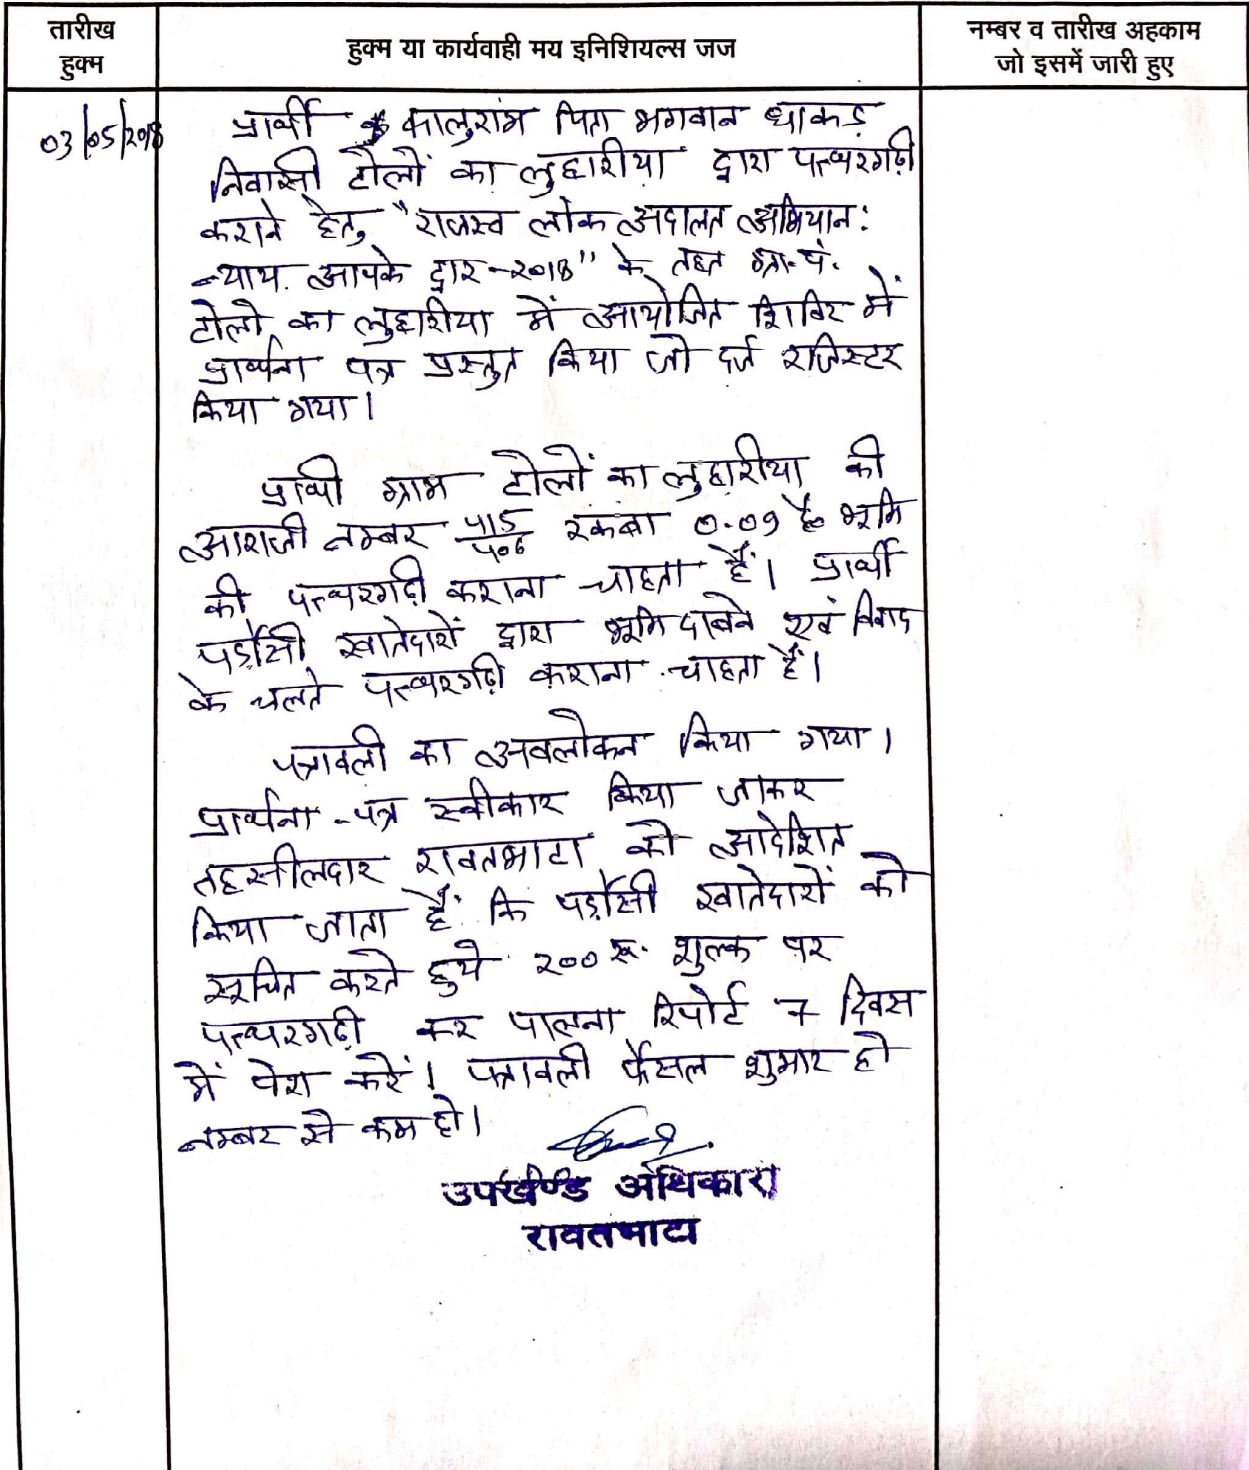 तारीख
हुक्म
हुक्म या कार्यवाही मय इनिशियल्स जज
नम्बर व तारीख अहकाम
जो इसमें जारी हुए
03/05/2018
प्रार्थी कालुराम पिता भगवान धाकड़
निवासी टोलों का लुहारीया द्वारा पत्थरगढ़ी
कराने हेतु "राजस्व लोक अदालत अभियान:
न्याय आपके द्वार-२०१८" के तहत ग्रा.पं.
टोलो का लुहारीया में आयोजित शिविर में
प्रार्थना पत्र प्रस्तुत किया जो दर्ज रजिस्टर
किया गया।
प्रार्थी ग्राम टोलों का लुहारीया की
आराजी नम्बर रकबा 0.09 है० भूमि
की पत्थरगढ़ी कराना चाहता हैं। प्रार्थी
पड़ौसी खातेदारों द्वारा भूमि दाबने एवं विवाद
के चलते पत्थरगढ़ी कराना चाहता हैं।
पत्रावली का अवलोकन किया गया।
प्रार्थना-पत्र स्वीकार किया जाकर
तहसीलदार रावतभाटा को आदेशित
किया जाता हैं कि पड़ौसी खातेदारों को
सूचित करते हुये २०० रू. शुल्क पर
पत्थरगढ़ी कर पालना रिपोर्ट 7 दिवस
में पेश करें। पत्रावली फैसल शुमार हो
नम्बर से कम हो।
उपखण्ड अधिकारी
रावतभाटा